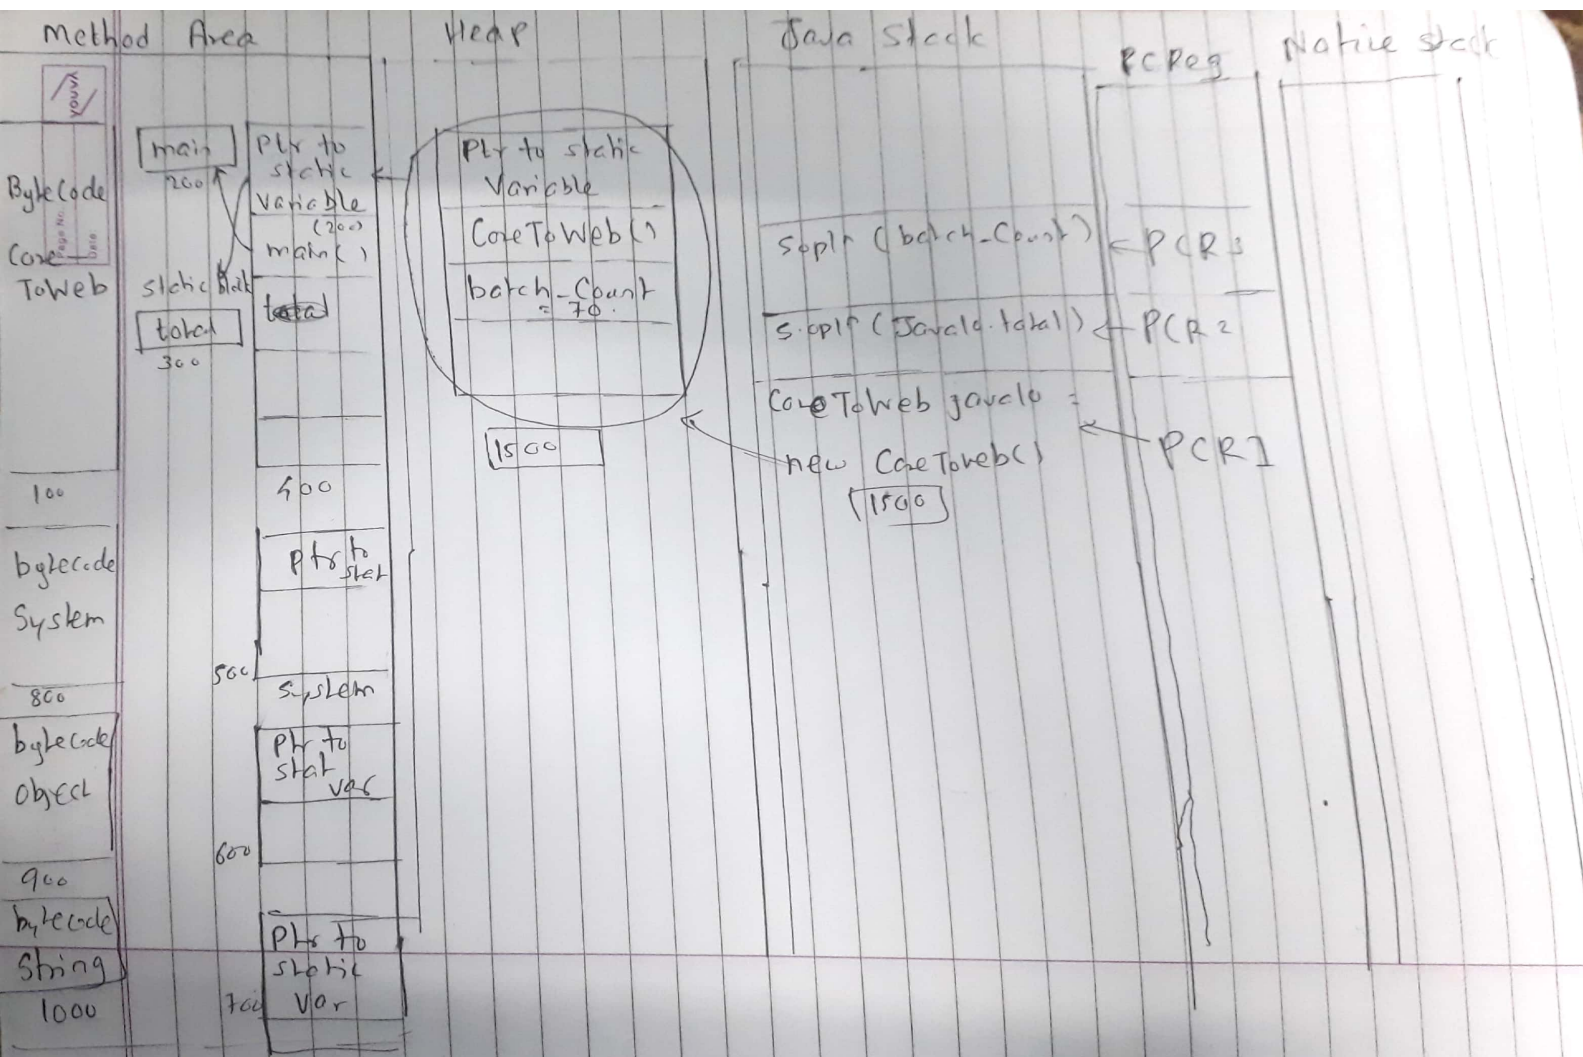 Method Area
Heap
Java Stack
PC Reg
Native stack
YOUVA
ByteCode
Core
ToWeb
100
bytecode
System
800
bytecode
Object
900
bytecode
String
1000
Page No.
Date
main
200
static Block
total
300
Ptr to
static
variable
(200)
main()
total
400
Ptr to
stat
500
System
Ptr to
stat
var
600
Ptr to
static
var
700
Ptr to static
Variable
CoreToWeb()
batch_Count
= 70.
1500
Sopln (batch_Count)
S.opln (Java10.total)
CoreToWeb java10 =
new CoreToweb()
1500
PCR3
PCR2
PCR1